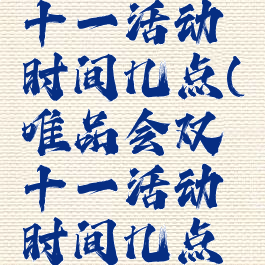 十一活动
时间几点(
唯品会双
十一活动
时间几点